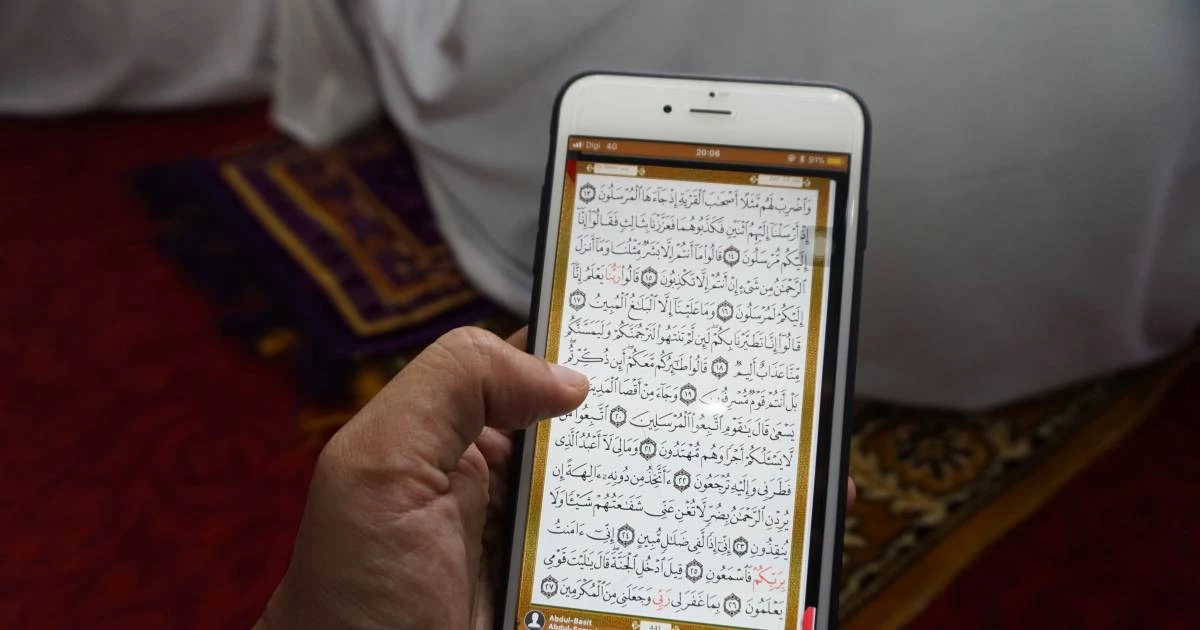 Digi 4G 20:06 91%
وَٱضۡرِبۡ لَهُم مَّثَلًا أَصۡحَٰبَ ٱلۡقَرۡيَةِ إِذۡ جَآءَهَا ٱلۡمُرۡسَلُونَ ١٣
إِذۡ أَرۡسَلۡنَآ إِلَيۡهِمُ ٱثۡنَيۡنِ فَكَذَّبُوهُمَا فَعَزَّزۡنَا بِثَالِثٖ فَقَالُوٓاْ إِنَّآ
إِلَيۡكُم مُّرۡسَلُونَ ١٤ قَالُواْ مَآ أَنتُمۡ إِلَّا بَشَرٞ مِّثۡلُنَا وَمَآ أَنزَلَ
ٱلرَّحۡمَٰنُ مِن شَيۡءٍ إِنۡ أَنتُمۡ إِلَّا تَكۡذِبُونَ ١٥ قَالُواْ رَبُّنَا يَعۡلَمُ إِنَّآ
إِلَيۡكُمۡ لَمُرۡسَلُونَ ١٦ وَمَا عَلَيۡنَآ إِلَّا ٱلۡبَلَٰغُ ٱلۡمُبِينُ ١٧
قَالُوٓاْ إِنَّا تَطَيَّرۡنَا بِكُمۡۖ لَئِن لَّمۡ تَنتَهُواْ لَنَرۡجُمَنَّكُمۡ وَلَيَمَسَّنَّكُم
مِّنَّا عَذَابٌ أَلِيمٞ ١٨ قَالُواْ طَٰٓئِرُكُم مَّعَكُمۡ أَئِن ذُكِّرۡتُمۚ
بَلۡ أَنتُمۡ قَوۡمٞ مُّسۡرِفُونَ ١٩ وَجَآءَ مِنۡ أَقۡصَا ٱلۡمَدِينَةِ
يَسۡعَىٰ قَالَ يَٰقَوۡمِ ٱتَّبِعُواْ ٱلۡمُرۡسَلِينَ ٢٠ ٱتَّبِعُواْ مَن
لَّا يَسۡـَٔلُكُمۡ أَجۡرٗا وَهُم مُّهۡتَدُونَ ٢١ وَمَالِيَ لَآ أَعۡبُدُ ٱلَّذِي
فَطَرَنِي وَإِلَيۡهِ تُرۡجَعُونَ ٢٢ ءَأَتَّخِذُ مِن دُونِهِۦٓ ءَالِهَةً إِن
يُرِدۡنِ ٱلرَّحۡمَٰنُ بِضُرّٖ لَّا تُغۡنِ عَنِّي شَفَٰعَتُهُمۡ شَيۡـٔٗا وَلَا
يُنقِذُونِ ٢٣ إِنِّيٓ إِذٗا لَّفِي ضَلَٰلٖ مُّبِينٍ ٢٤ إِنِّيٓ ءَامَنتُ
بِرَبِّكُمۡ فَٱسۡمَعُونِ ٢٥ قِيلَ ٱدۡخُلِ ٱلۡجَنَّةَۖ قَالَ يَٰلَيۡتَ قَوۡمِي
يَعۡلَمُونَ ٢٦ بِمَا غَفَرَ لِي رَبِّي وَجَعَلَنِي مِنَ ٱلۡمُكۡرَمِينَ ٢٧
Abdul-Basit
441